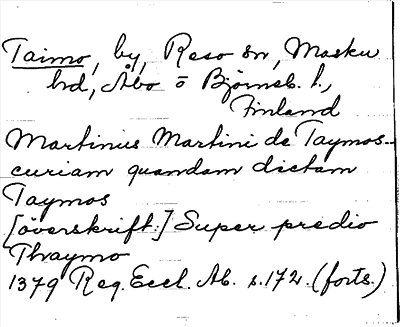 Taimo, by, Reso sn, Masku
hd, Åbo o Björneb. l.,
Finland
Martinus Martini de Taymos-
curiam quandam dictam
Taymos
[överskrift:] Super predio
Thaymo
1379 Reg. Eccl. Ab. s. 172. (forts.)